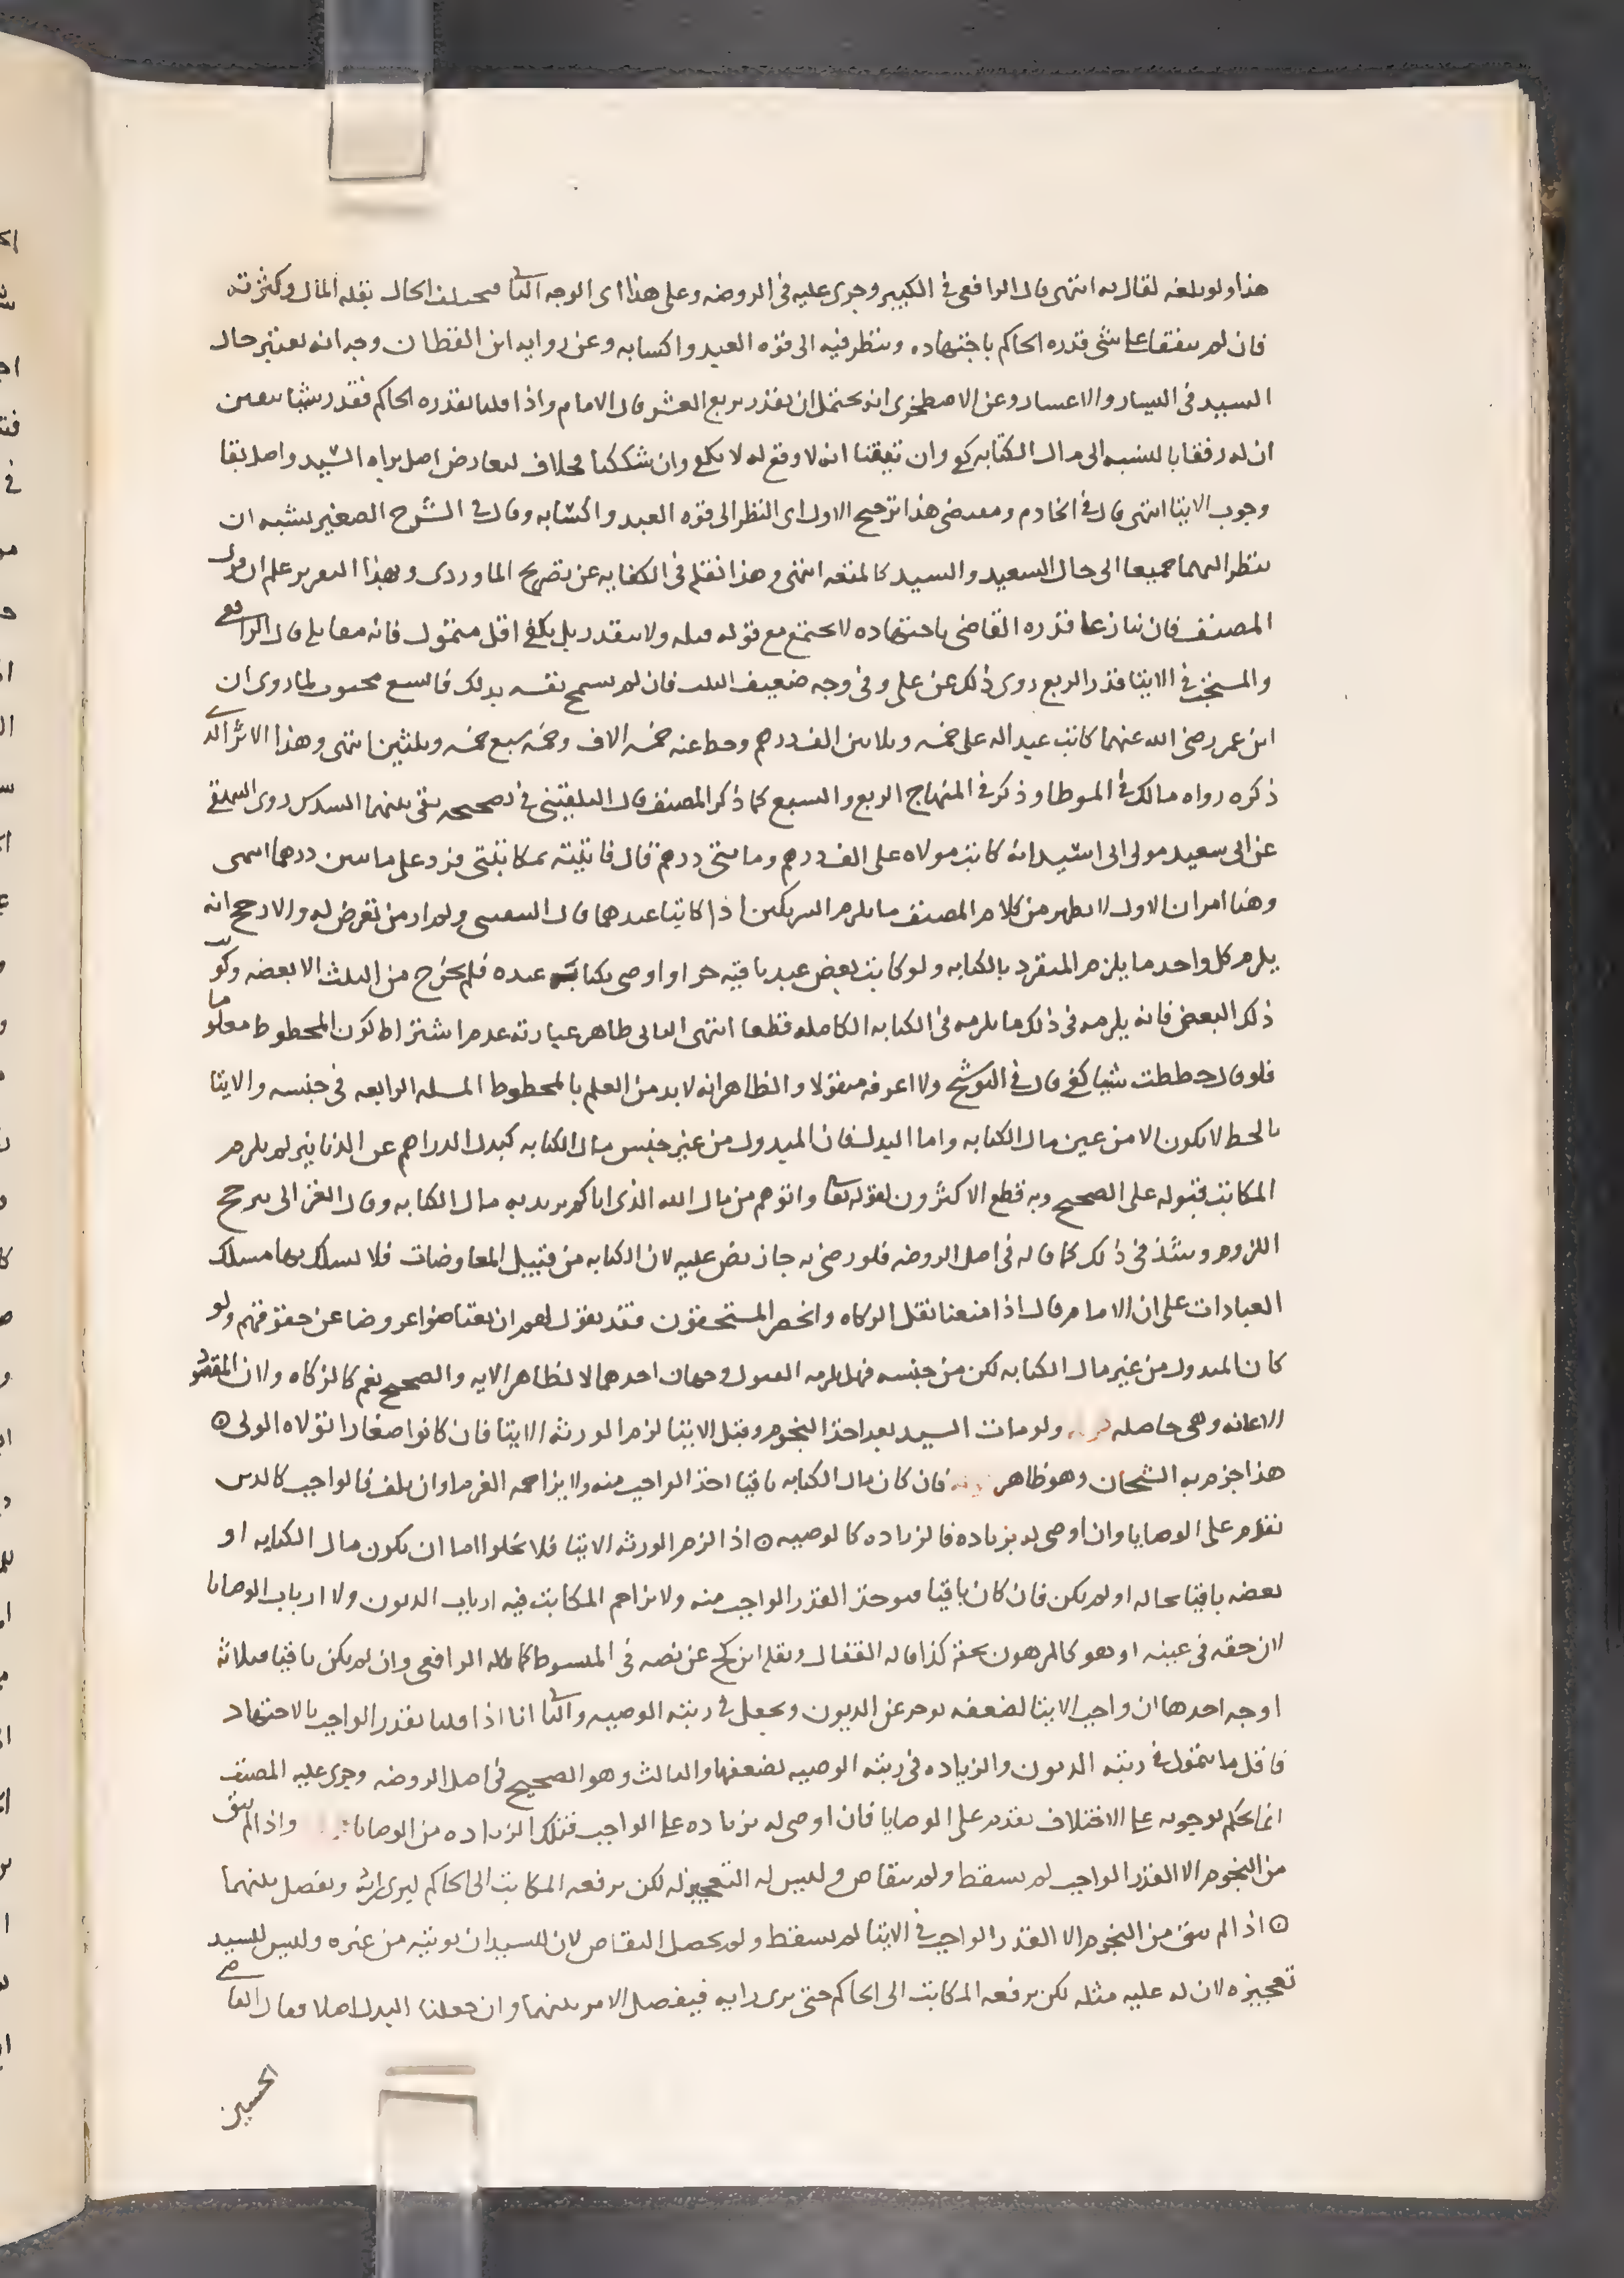 هذا ولو بلغه لقال به انتهى قال الرافعي في الكبير وجرى عليه في الروضه وعلى هذا اى الوجه الثانى فيختلف الحال بقله المال وكثرته
فان لم يتفقا على شى قدره الحاكم باجتهاده وينظر فيه الى قوه العبد واكسابه وعن روايه ابن القطان وجه انه يعتبر حال
السيد فى اليسار والاعسار وعن الاصطخرى انه يحتمل ان يقدر بربع العشر قال الامام واذا قلنا يقدره الحاكم فقدر شيا يتعين
ان له رفقا بالنسبه الى مال الكتابه كفى وان تيقنا انه لا وقع له لا يكفى وان شككنا فخلاف لتعارض اصل براه السيد واصل بقا
وجوب الايتا انتهى قال فى الخادم ومقتضى هذا ترجيح الاول اى النظر الى قوه العبد واكتسابه وقال فى الشرح الصغير يشبه ان
ينظر اليهما جميعا الى حال السعيد والسيد كالمتعه انتهى وهذا نقله فى الكفايه عن تصريح الماوردى وبهذا التقرير علم ان قول
المصنف فان تنازعا قدره القاضى باجتهاده لا يجتمع مع قوله قبله ولا يتقدر بل يكفى اقل متمول فانه مقابله قال الرافعى
والمستحب فى الايتا قدر الربع روى ذلك عن على وفى وجه ضعيف الثلث فان لم يسمح نفسه بذلك فالسبع محبوب لما روى ان
ابن عمر رضى الله عنهما كاتب عبدا له على خمسه وثلاثين الف درهم وحط عنه خمسه الاف وخمسه سبع خمسه وثلثين انتهى وهذا الاثر الذى
ذكره رواه مالك فى الموطا وذكر فى المنهاج الربع والسبع كما ذكر المصنف قال البلقينى فى تصحيحه بقى بينهما السدس روى البيهقى
عن ابى سعيد مولى ابى اسيد انه كاتب مولاه على الف درهم ومايتى درهم قال فاتيته بمكاتبتى فرد على مايتين درهما انتهى
وهنا امران الاول لا يظهر من كلام المصنف ما يلزم الشريكين اذا كاتبا عبدهما قال البلقينى ولم ار من تعرض له والارجح انه
يلزم كل واحد ما يلزم المنفرد بالكتابه ولو كاتب بعض عبد باقيه حر او اوصى بكتابه عبده فلم يخرج من الثلث الا بعضه وكوتب
ذلك البعض فانه يلزمه فى ذلك ما يلزمه فى الكتابه الكامله قطعا انتهى الثانى ظاهر عبارته عدم اشتراط كون المحطوط معلوما
فلو قال حططت شيا كفى قال فى التوشيح ولا اعرفه منقولا والظاهر انه لا بد من العلم بالمحطوط المسله الرابعه فى جنسه والايتا
بالحط لا يكون الا من عين مال الكتابه واما البدل فان المبدول من غير جنس مال الكتابه كبدل الدراهم عن الدنانير لم يلزم
المكاتب قبوله على الصحيح وبه قطع الاكثرون لقوله تعالى واتوهم من مال الله الذى اتاكم يريد به مال الكتابه وقال الغزالى يرجح
اللزوم وشذ فى ذلك كما قاله فى اصل الروضه فلو رضى به جاز نص عليه لان الكتابه من قبيل المعاوضات فلا يسلك بها مسلك
العبادات على ان الامام قال اذا منعنا نقل الزكاه وانحصر المستحقون فقد يقول لهم ان يعتاضوا عروضا عن حقوقهم ولو
كان المبدول من غير مال الكتابه لكن من جنسه فهل يلزمه القبول وجهان احدهما لا لظاهر الايه والصحيح نعم كالزكاه ولان المقصود
الاعانه وهى حاصله ولو مات السيد بعد اخذ النجوم وقبل الايتا لزم الورثه الايتا فان كانوا صغارا تولاه الولى ۞
هذا جزم به الشيخان وهو ظاهر فان كان مال الكتابه باقيا اخذ الواجب منه ولا يزاحمه الغرما وان تلف فالواجب كالدين
يقدم على الوصايا وان اوصى له بزياده فالزياده كالوصيه ۞ اذا لزم الورثه الايتا فلا تخلوا اما ان يكون مال الكتابه او
بعضه باقيا بحاله او لم يكن فان كان باقيا فيوخذ القدر الواجب منه ولا يزاحم المكاتب فيه ارباب الديون ولا ارباب الوصايا
لان حقه فى عينه او هو كالمرهون بحقه كذا قاله القفال ونقله ابن كج عن نصه فى المبسوط كما قاله الرافعى وان لم يكن باقيا فثلاثه
اوجه احدها ان واجب الايتا لضعفه يوخر عن الديون ويجعل فى رتبه الوصيه والثانى انا اذا قلنا يقدر الواجب بالاجتهاد
فاقل ما يتمول فى رتبه الديون والزياده فى رتبه الوصيه لضعفها والثالث وهو الصحيح فى اصل الروضه وجرى عليه المصنف
انما يحكم بوجوبه على الاختلاف يقدم على الوصايا فان اوصى له بزياده على الواجب فتلك الزياده من الوصايا واذا لم يبق
من النجوم الا القدر الواجب لم يسقط ولم يتقاص وليس له التعجيز له لكن يرفعه المكاتب الى الحاكم ليرى رايه ويفصل بينهما
۞ اذا لم يبق من النجوم الا القدر الواجب فى الايتا لم يسقط ولم يحصل التقاص لان للسيد ان يوتيه من غيره وليس للسيد
تعجيزه لان له عليه مثله لكن يرفعه المكاتب الى الحاكم حتى يرى رايه فيفصل الامر بينهما وان جعلنا البدل اصلا فقال القاضى
الحسين